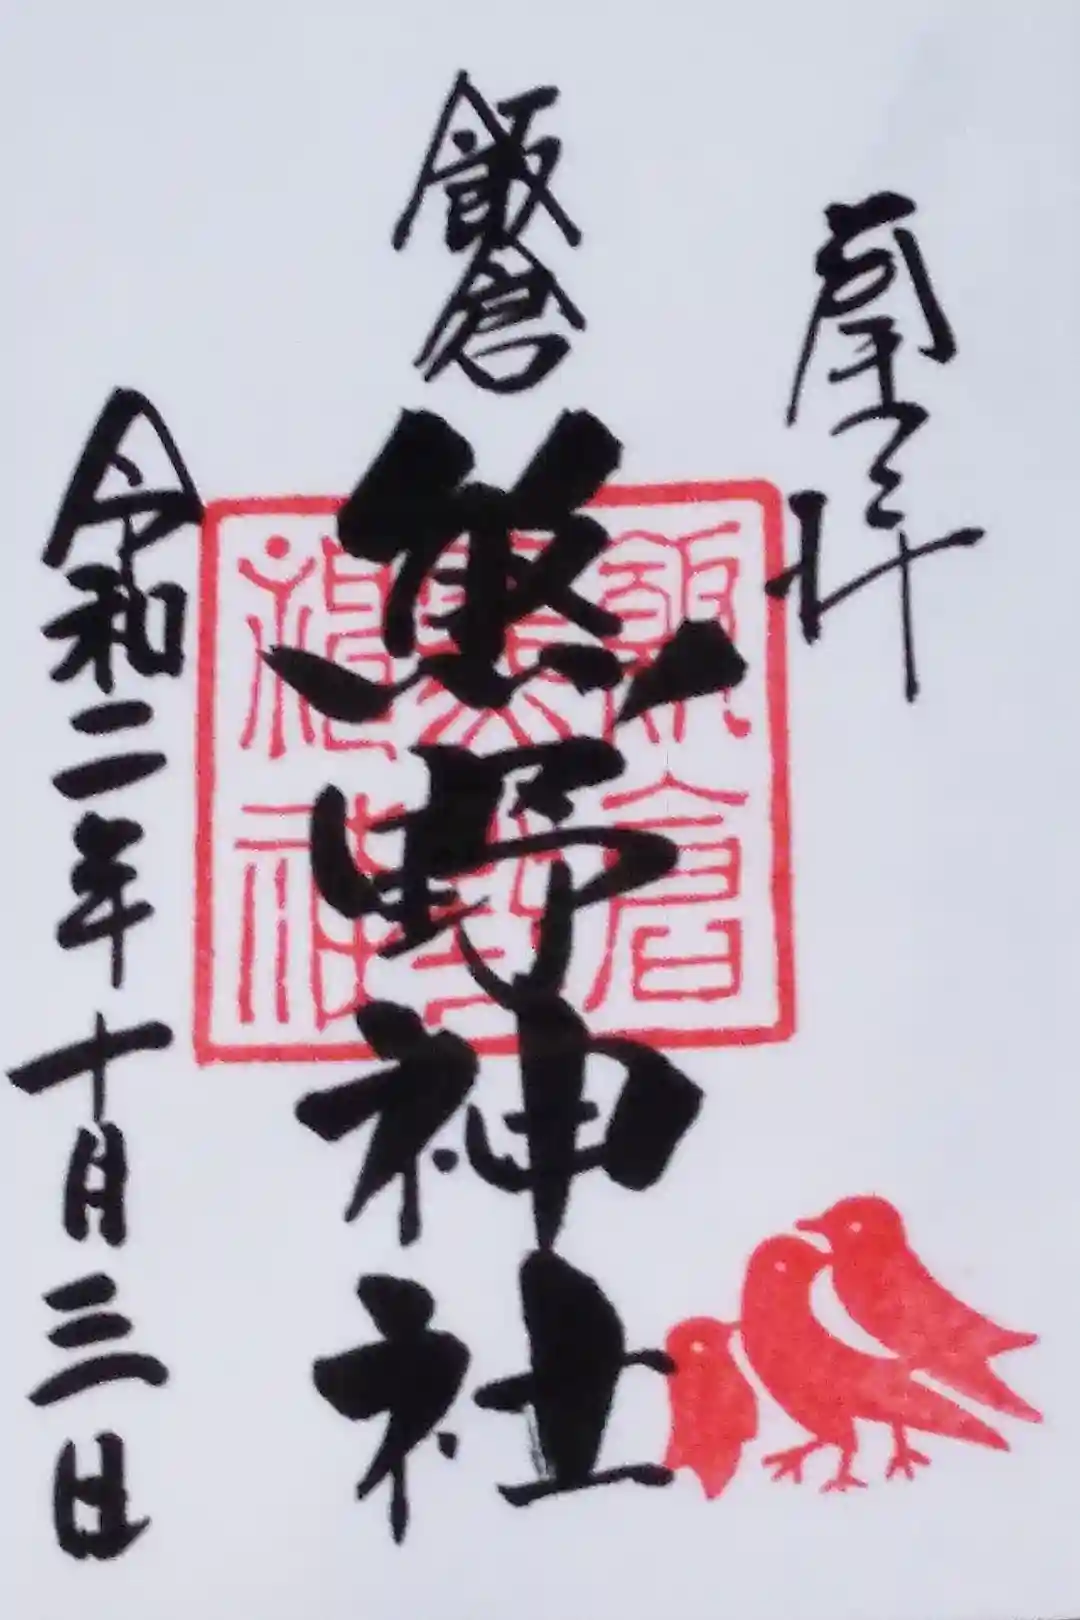 飯倉
熊野神社
令和二年十月三日
飯倉
熊野
神社